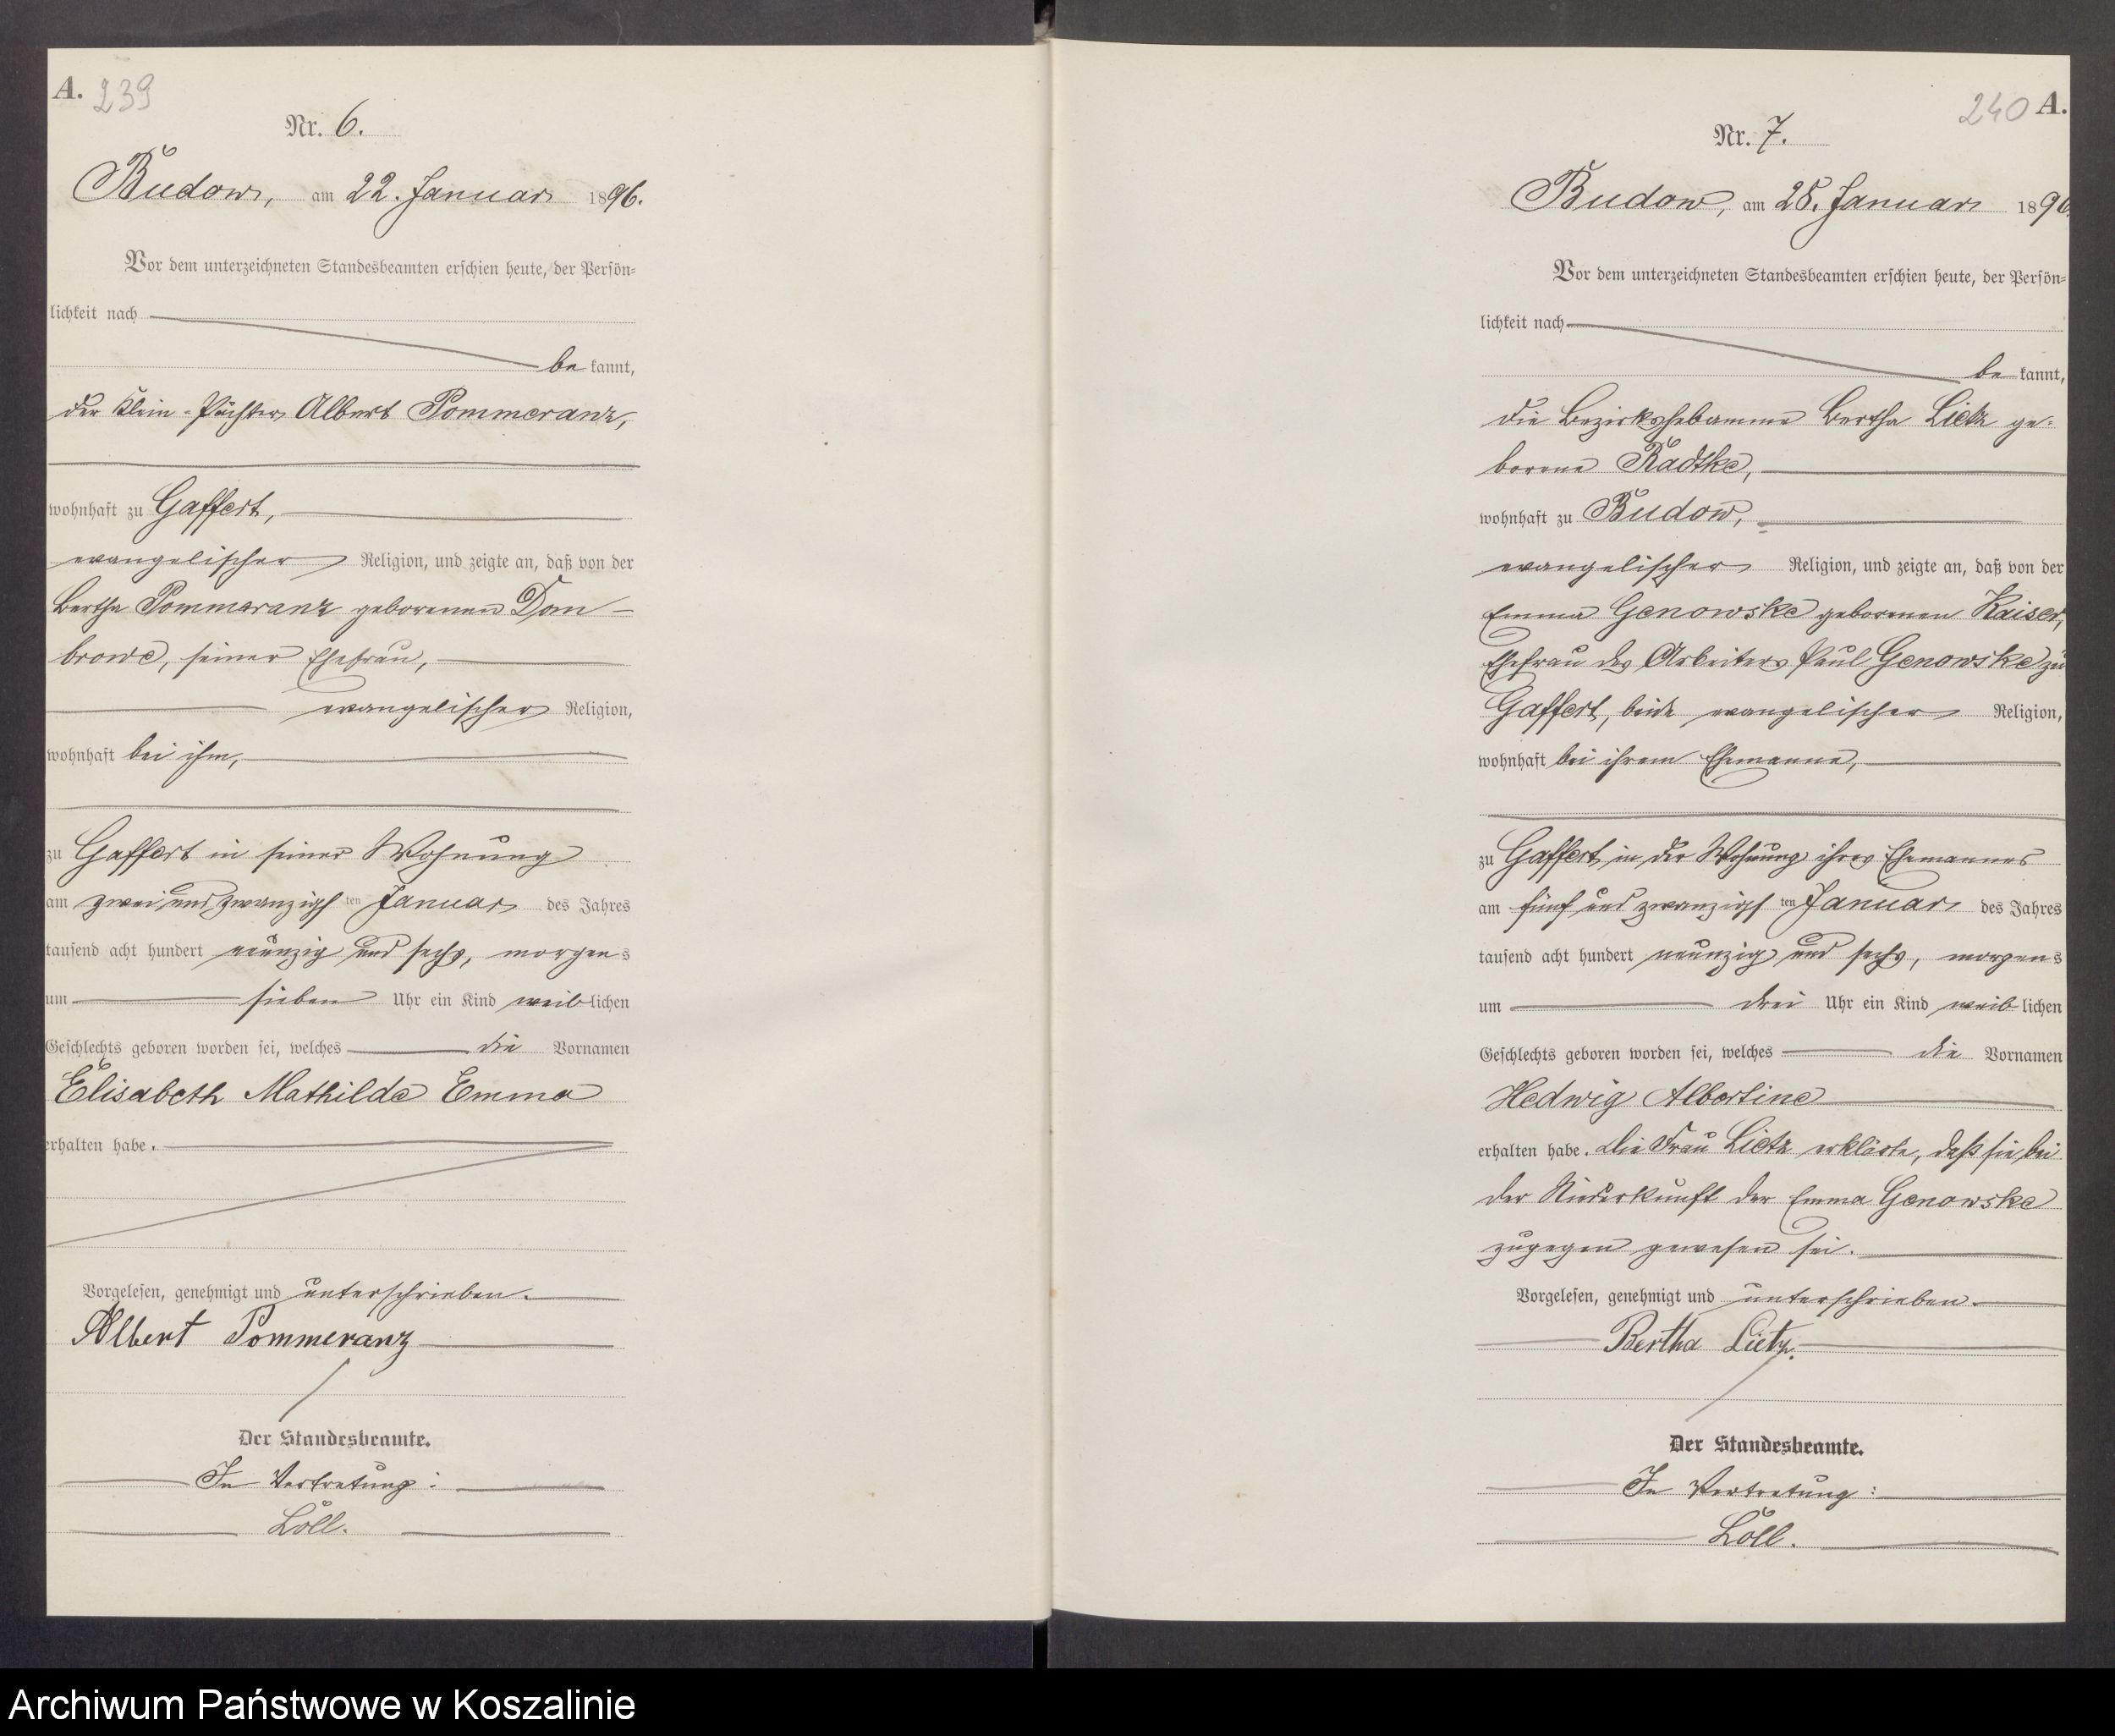 A. 239
Nr. 6.
Budow, am 22. Januar 1896.
Vor dem unterzeichneten Standesbeamten erschien heute, der Persön=
lichkeit nach
be kannt,
der Klein-Pächter Albert Pommeranz,
wohnhaft zu Gaffert,
evangelischer Religion, und zeigte an, daß von der
Bertha Pommeranz geborenen Dom-
browe, seiner Ehefrau,
evangelischer Religion,
wohnhaft bei ihm,
zu Gaffert in seiner Wohnung
am zwei und zwanzigsten Januar des Jahres
tausend acht hundert neunzig und sechs, morgens
um sieben Uhr ein Kind weiblichen
Geschlechts geboren worden sei, welches die Vornamen
Elisabeth Mathilde Emma
erhalten habe.
Vorgelesen, genehmigt und unterschrieben.
Albert Pommeranz
Der Standesbeamte.
In Vertretung:
Löll.
240 A.
Nr. 7.
Budow, am 28. Januar 1896.
Vor dem unterzeichneten Standesbeamten erschien heute, der Persön=
lichkeit nach
be kannt,
die Bezirkshebamme Bertha Lietz ge-
borene Radtke,
wohnhaft zu Budow,
evangelischer Religion, und zeigte an, daß von der
Emma Genowske geborenen Kaiser,
Ehefrau des Arbeiters Paul Genowske zu
Gaffert, beide evangelischer Religion,
wohnhaft bei ihrem Ehemanne,
zu Gaffert in der Wohnung ihres Ehemannes
am fünf und zwanzigsten Januar des Jahres
tausend acht hundert neunzig und sechs, morgens
um drei Uhr ein Kind weiblichen
Geschlechts geboren worden sei, welches die Vornamen
Hedwig Albertine
erhalten habe. Die Frau Lietz erklärte, daß sie bei
der Niederkunft der Emma Genowske
zugegen gewesen sei.
Vorgelesen, genehmigt und unterschrieben.
Bertha Lietz.
Der Standesbeamte.
In Vertretung:
Löll.
Archiwum Państwowe w Koszalinie